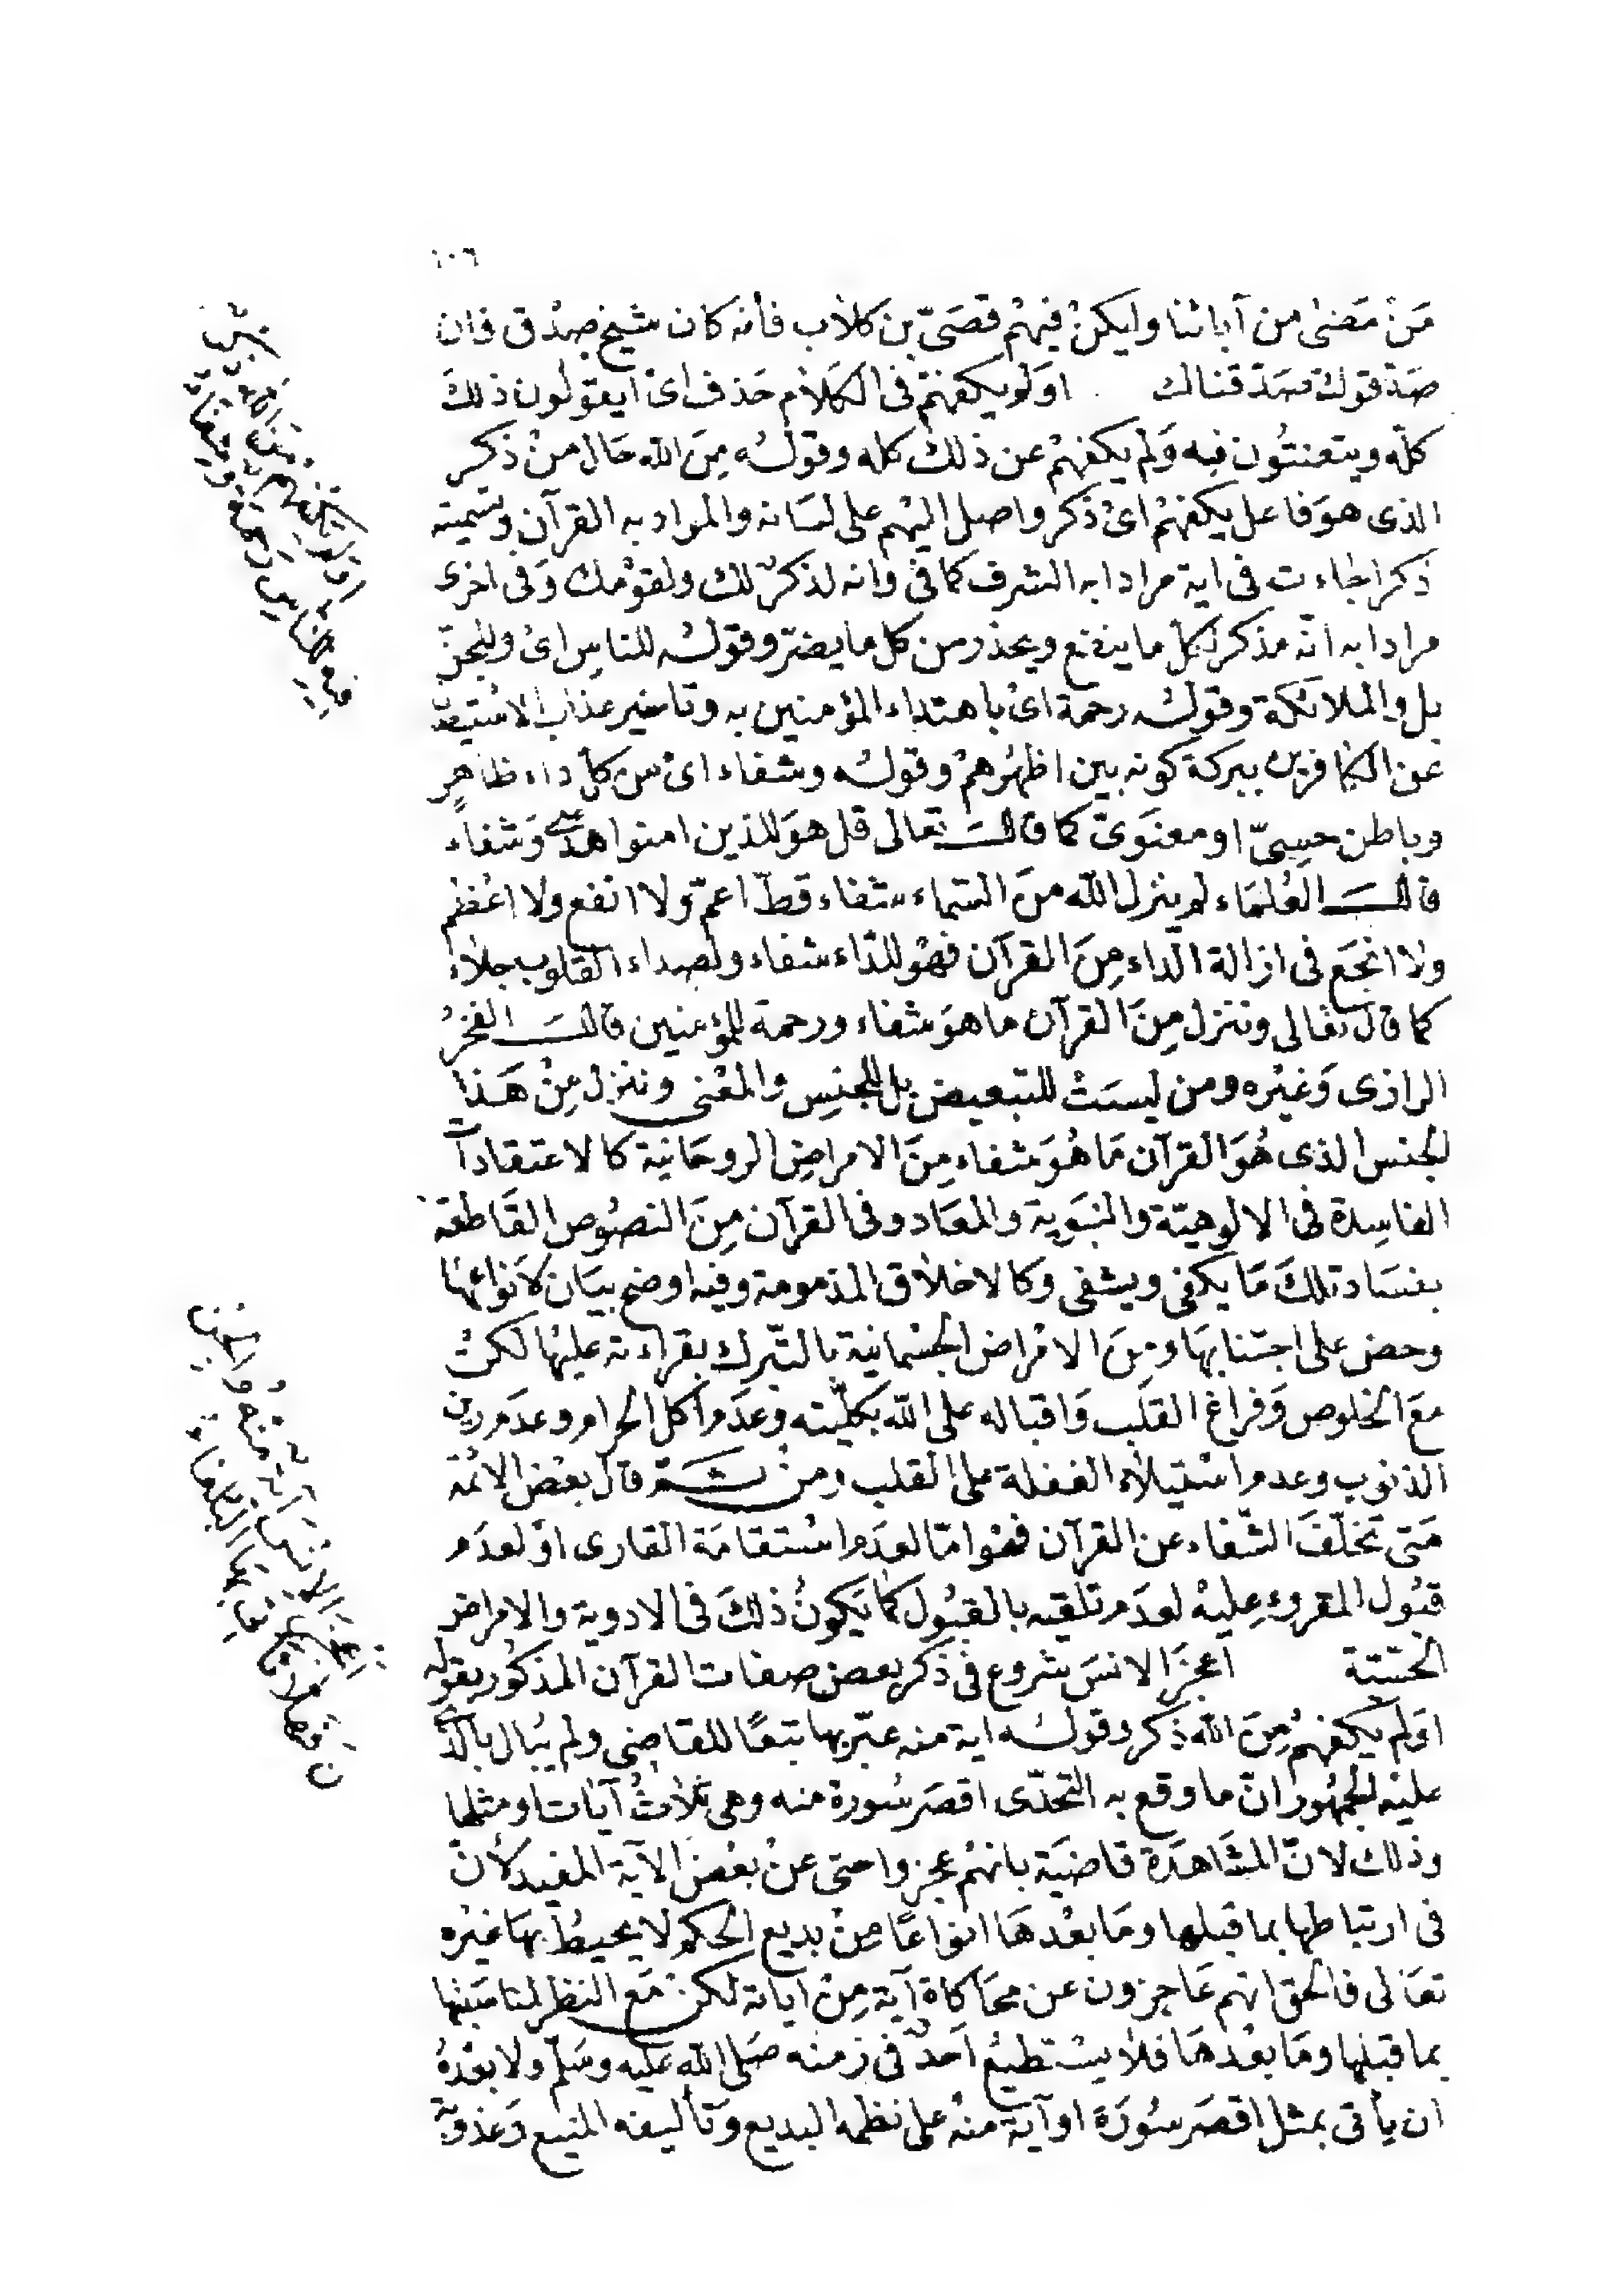 ١٠٦
مَنْ مَضىٰ من آبائنا وليكنْ فيهمْ قصَىّ بن كلاب فأنه كان شيخ صِدْق فان
صَدّقوك صَدّقناك اوَلم يكفهمْ فى الكلام حَذف اىْ ايقولون ذلكَ
كلّه ويتعنتُون فيه وَلم يكفهمْ عن ذلك كله وقولُه مِنَ الله حَال منْ ذكر
الذى هوَ فاعل يكفهمْ اىْ ذكر واصل اليهْم على لسَانه والمراد به القرآن وتسميته
ذكرا جاءت فى اية مرادا به الشرف كما فى وانه لذكرٌ لك ولقوْمك وَفى اخرى
مرادا به انّه مذكر لكل ما ينفع ويحذر من كل ما يضرّ وقولُه للناسِ اىْ وللجنّ
بل والملائكة وقولُه رحمة اىْ باهتداء المؤمنين به وتاخير عذاب الاستيصال
عن الكافرين ببركة كونه بين اظهُرهمْ وقولُه وشفاء اىْ من كل داء ظاهرٍ
وباطن حِسِىّ او معنَوىّ كما قالَ تعالى قل هوَ للذين امنوا هدًى وَشفاء
قالَ العُلمَاء لم ينزل الله منَ السّماء شفاء قطّ اعمّ ولا انفع ولا اعْظم
ولا انجَع فى ازالة الداء مِنَ القرآن فهوَ للدّاء شفاء ولصداء القلوب جلاء
كما قال تعالى وننزل مِنَ القرآن ما هوَ شفاء ورحمة للمؤمنين قالَ الفخرُ
الرازى وَغيْره ومن ليسَتْ للتبعيض بل للجنِس والمعْنى وننزل مِنْ هَذا
الجنس الذى هُوَ القرآن مَا هُوَ شفاء مِنَ الامراضِ الروحَانية كالاعتقادات
الفاسِدة فى الالوهيّة والنبَوية والمعَاد وفى القرآن مِنَ النصُوص القَاطعَة
بفسَاد تلكَ مَا يكفى ويشفى وكالاخلاق المذمومة وفيه اوضح بيَان لانواعهَا
وحض على اجتنابهَا ومِنَ الامْراض الجسْمانية بالتبّرك بقراءته عليْها لكنْ
معَ الخلوص وَفراغ القلَب وَاقباله على الله بكليّته وَعدَم اكل الحرام وعدَم رين
الذنوب وعدم اسْتيلاء الغفلة على القلب ومنْ ثمَّ قال بعْض الائمّة
مَتى تخلّفَ الشّفاء عن القرآن فهوَ امّا لعدَم اسْتقامَة القارى اوْ لعدَم
قبُول المقروءِ عليْهْ لعدَم تلقيه بالقبُول كما يَكونُ ذلكَ فى الادوية والامراض
الحسّيّة اعجزَ الانسَ شروع فى ذكر بعض صفات القرآن المذكور بقوله
اوَلم يكفهمْ مِنَ الله ذكر وقولُه اية منه عبّر بها تبعًا للقاضى ولم يُبال بالّذى
عليْه الجمْهُور انّ ما وقع به التحدّى اقصَر سُورة منه وهى ثلاثُ آيات او مثلها
وذلك لانّ المشَاهدَة قاضيَة بانهمْ عجزوا حتى عنْ بعْض الآية المفيد لانّ
فى ارتباطها بما قبلها ومَا بعْدهَا انواعًا مِنْ بديع الحكم لا يحيطُ بهَا غيْره
تعَالى فالحق انهم عَاجزون عن محَاكاة آية مِنْ اياته لكنْ مَع النظر لمناسَبتها
بما قبلها ومَا بعْدهَا فلا يسْتطيعُ احَدٌ فى زمنه صَلى الله عليْه وسَلم ولا بعْدهُ
ان يأتى بمثل اقصَر سُورَة او آية منْهُ على نظمه البديع وَتأليفه المنيع وَعذوبَة
اوَلم يكفهم من الله ذكر
فيه للناس رحمة وشفاء
اعجز الانس آية منه والجن